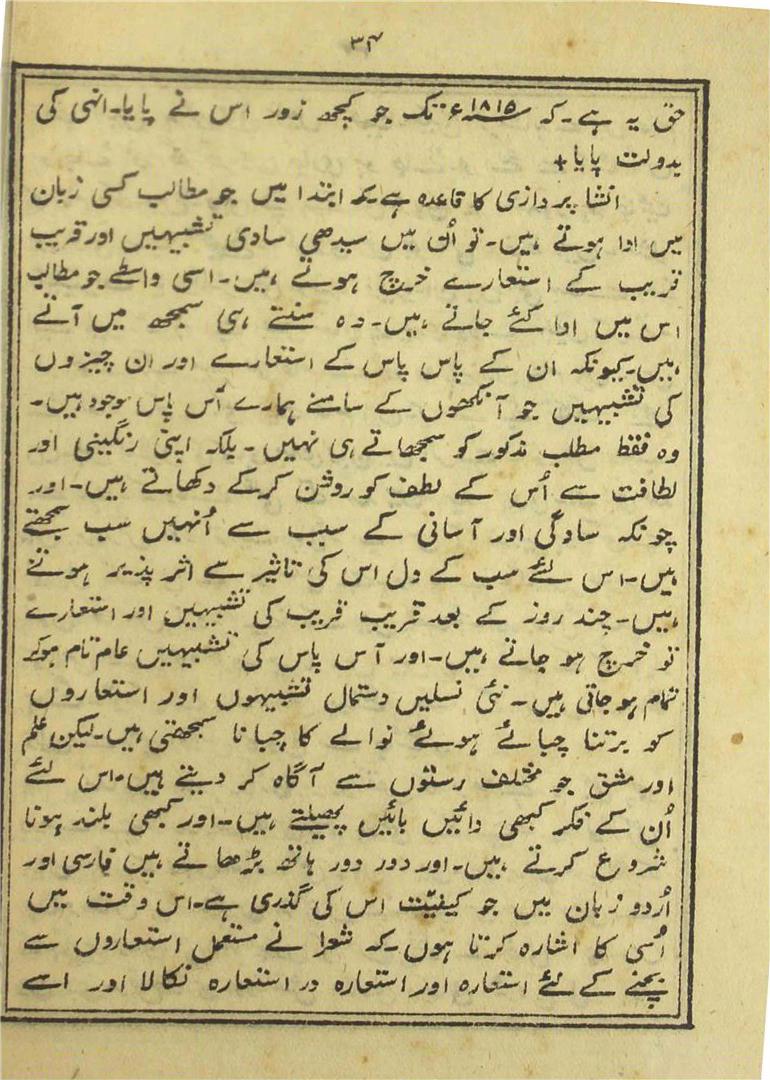 ۳۴
حق یہ ہے۔ کہ ۱۸۱۵ء تک جو کچھ زور اس نے پایا۔ انہی کی
بدولت پایا+
انشا پردازی کا قاعدہ ہے۔ کہ ابتدا میں جو مطالب کسی زبان
میں ادا ہوتے ہیں۔ تو اُن میں سیدھی سادی تشبیہیں اور قریب
قریب کے استعارے خرچ ہوتے ہیں۔ اسی واسطے جو مطالب
اس میں ادا کئے جاتے ہیں۔ وہ سنتے ہی سمجھ میں آتے
ہیں۔ کیونکہ ان کے پاس پاس کے استعارے اور ان چیزوں
کی تشبیہیں جو آنکھوں کے سامنے ہمارے آس پاس موجود ہیں۔
وہ فقط مطلب مذکور کو سمجھاتے ہی نہیں۔ بلکہ اپنی رنگینی اور
لطافت سے اُس کے لطف کو روشن کرکے دکھاتے ہیں۔ اور
چونکہ سادگی اور آسانی کے سبب سے اُنہیں سب سمجھتے
ہیں۔ اس لئے سب کے دل اس کی تاثیر سے اثر پذیر ہوتے
ہیں۔ چند روز کے بعد قریب قریب کی تشبیہیں اور استعارے
تو خرچ ہو جاتے ہیں۔ اور آس پاس کی تشبیہیں عام تام ہوکر
تمام ہو جاتی ہیں۔ نئی نسلیں دستمال تشبیہوں اور استعاروں
کو برتنا چبائے ہوئے نوالے کا چبانا سمجھتی ہیں۔ لیکن علم
اور مشق جو مختلف رستوں سے آگاہ کر دیتے ہیں۔ اس لئے
اُن کے فکر کبھی دائیں بائیں پھیلتے ہیں۔ اور کبھی بلند ہونا
شروع کرتے ہیں۔ اور دور دور ہاتھ بڑھاتے ہیں فارسی اور
اُردو زبان میں جو کیفیّت اس کی گذری ہے۔ اس وقت میں
اُسی کا اشارہ کرتا ہوں۔ کہ شعرا نے مستعمل استعاروں سے
بچنے کے لئے استعارہ اور استعارہ در استعارہ نکالا اور اسے